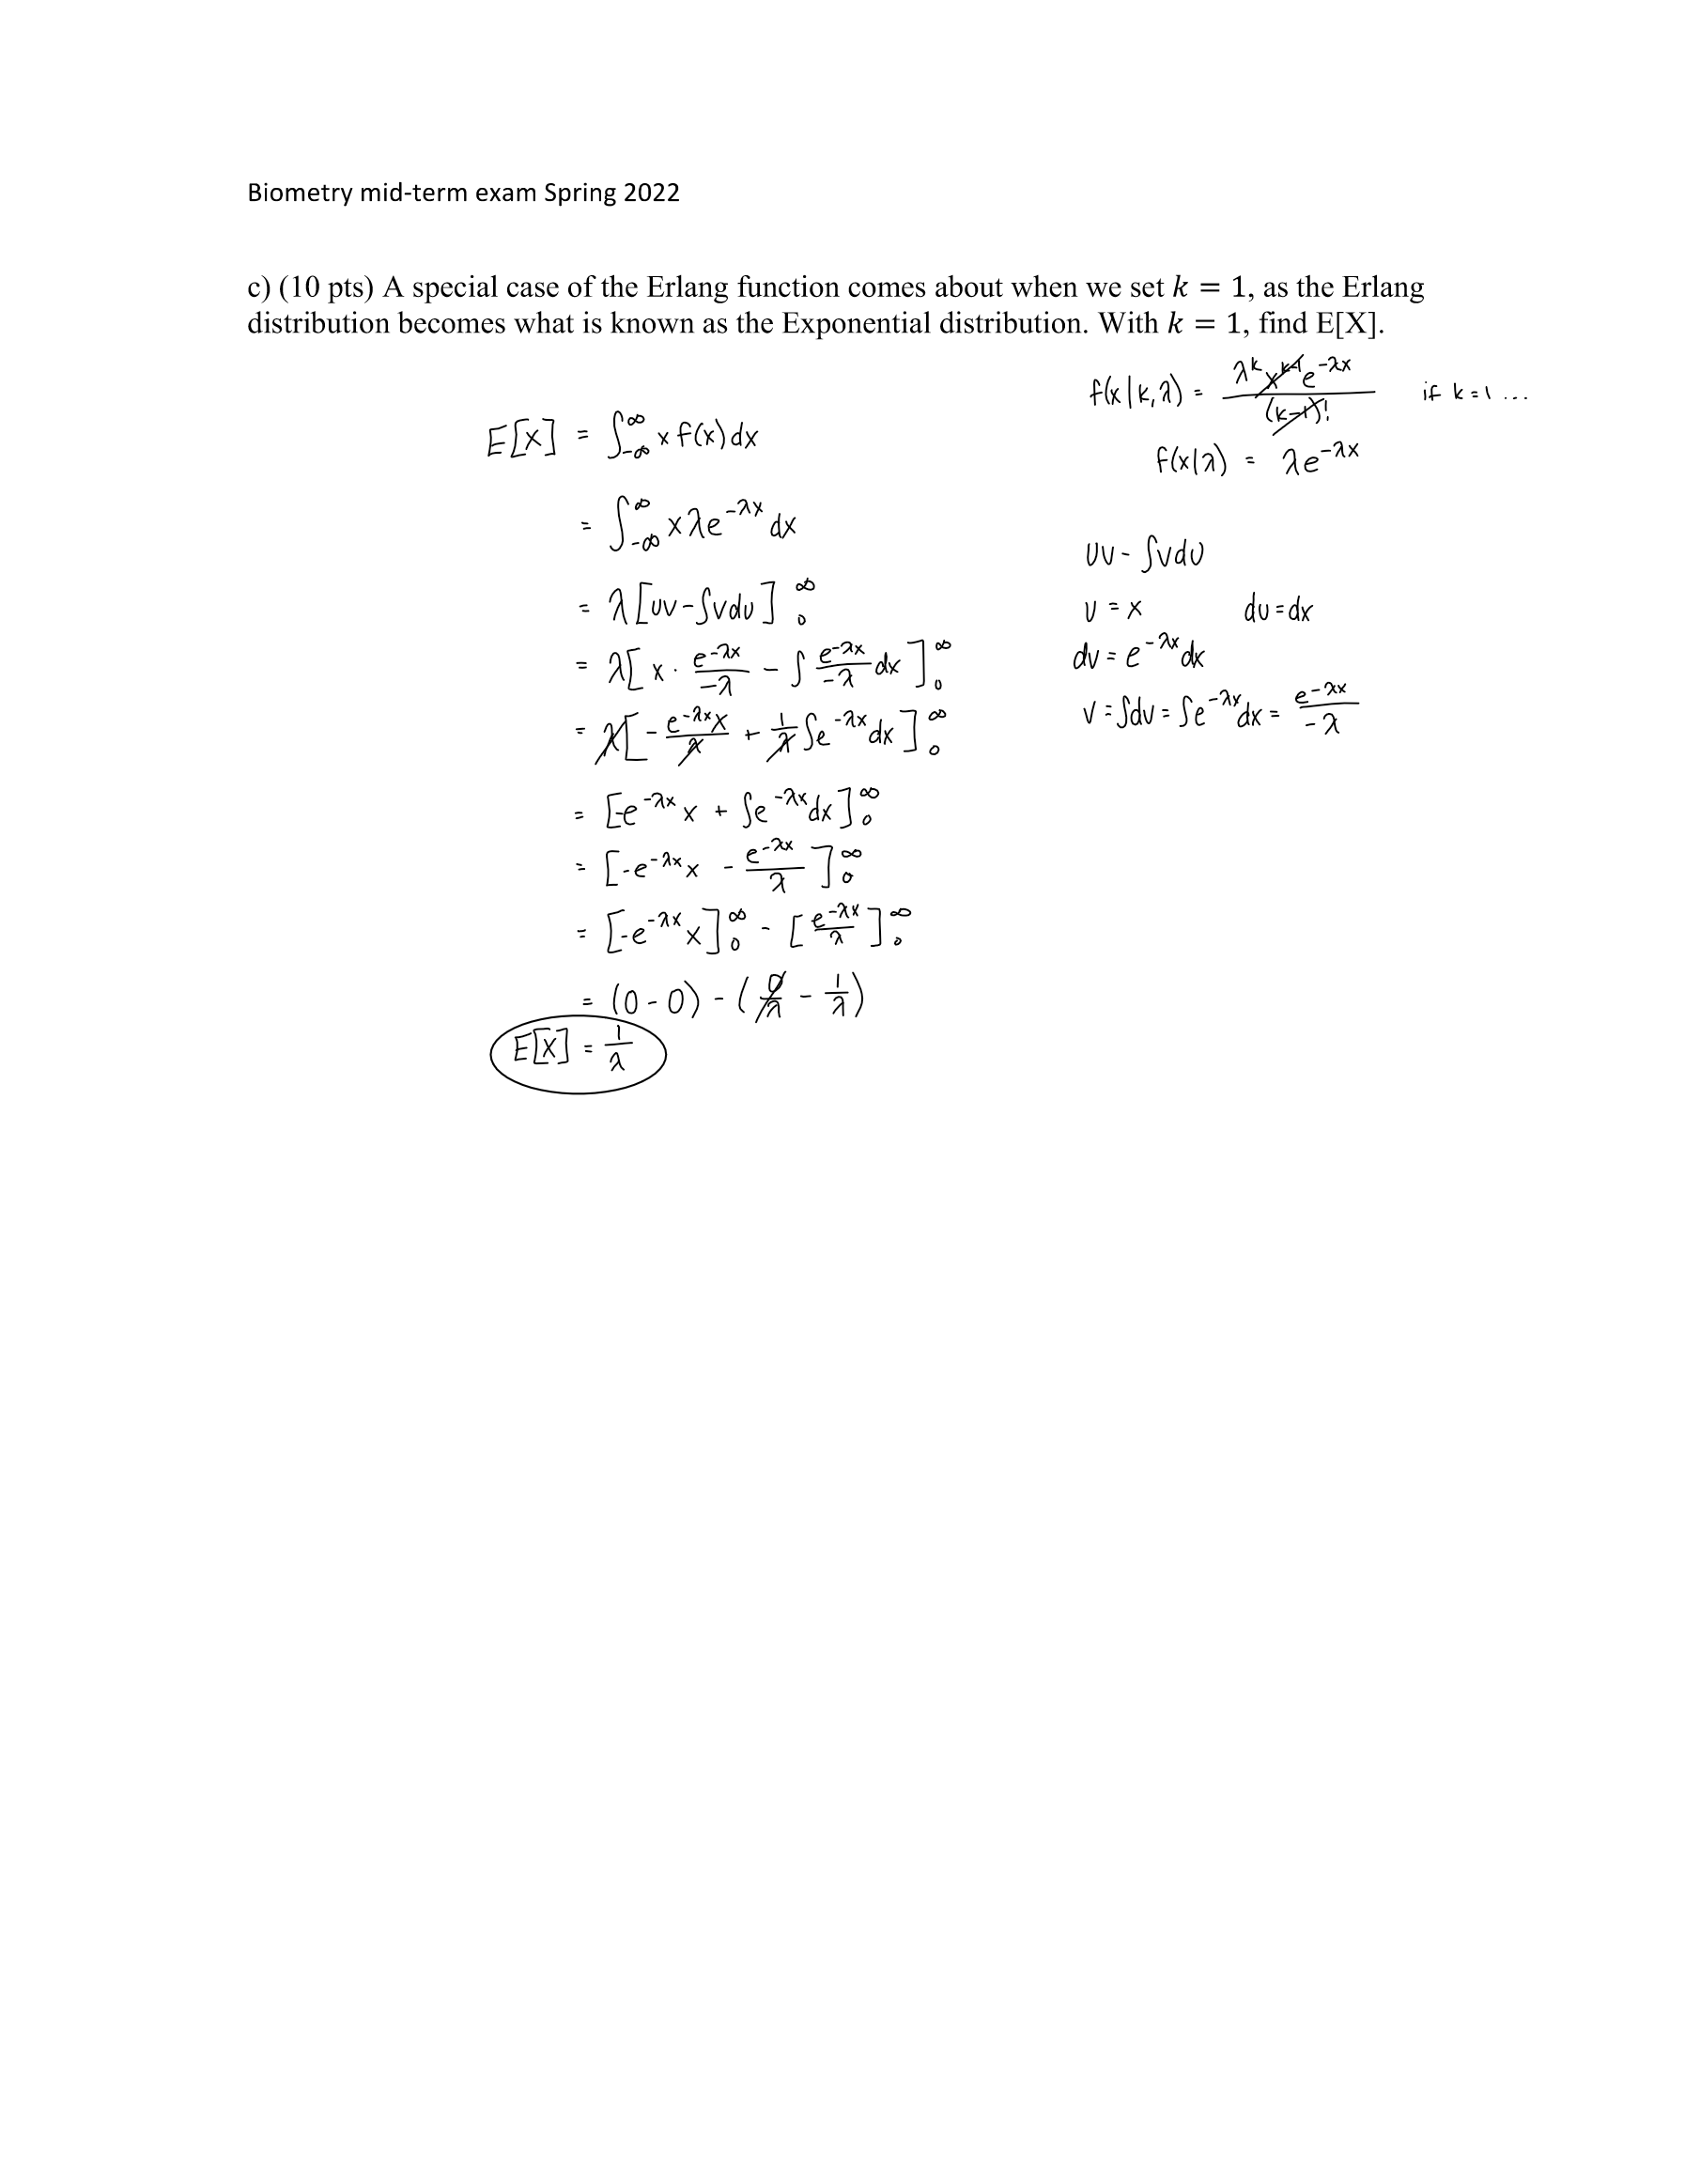 Biometry mid-term exam Spring 2022
c) (10 pts) A special case of the Erlang function comes about when we set k = 1, as the Erlang
distribution becomes what is known as the Exponential distribution. With k = 1, find E[X].
f(x|k,λ) = λ^k x^(k-1) e^(-λx) / (k-1)! if k=1 ...
f(x|λ) = λe^(-λx)
E[X] = ∫_{-∞}^{∞} x f(x) dx
= ∫_{-∞}^{∞} xλe^(-λx) dx
= λ[uv - ∫vdu]_0^∞
= λ[x · e^(-λx)/-λ - ∫ e^(-λx)/-λ dx]_0^∞
= λ[- e^(-λx)x/λ + 1/λ ∫e^(-λx) dx]_0^∞
= [-e^(-λx) x + ∫e^(-λx) dx]_0^∞
= [-e^(-λx) x - e^(-λx)/λ]_0^∞
= [-e^(-λx) x]_0^∞ - [e^(-λx)/λ]_0^∞
= (0-0) - (0/λ - 1/λ)
E[X] = 1/λ
uv - ∫vdu
u = x du = dx
dv = e^(-λx) dx
v = ∫dv = ∫e^(-λx) dx = e^(-λx)/-λ